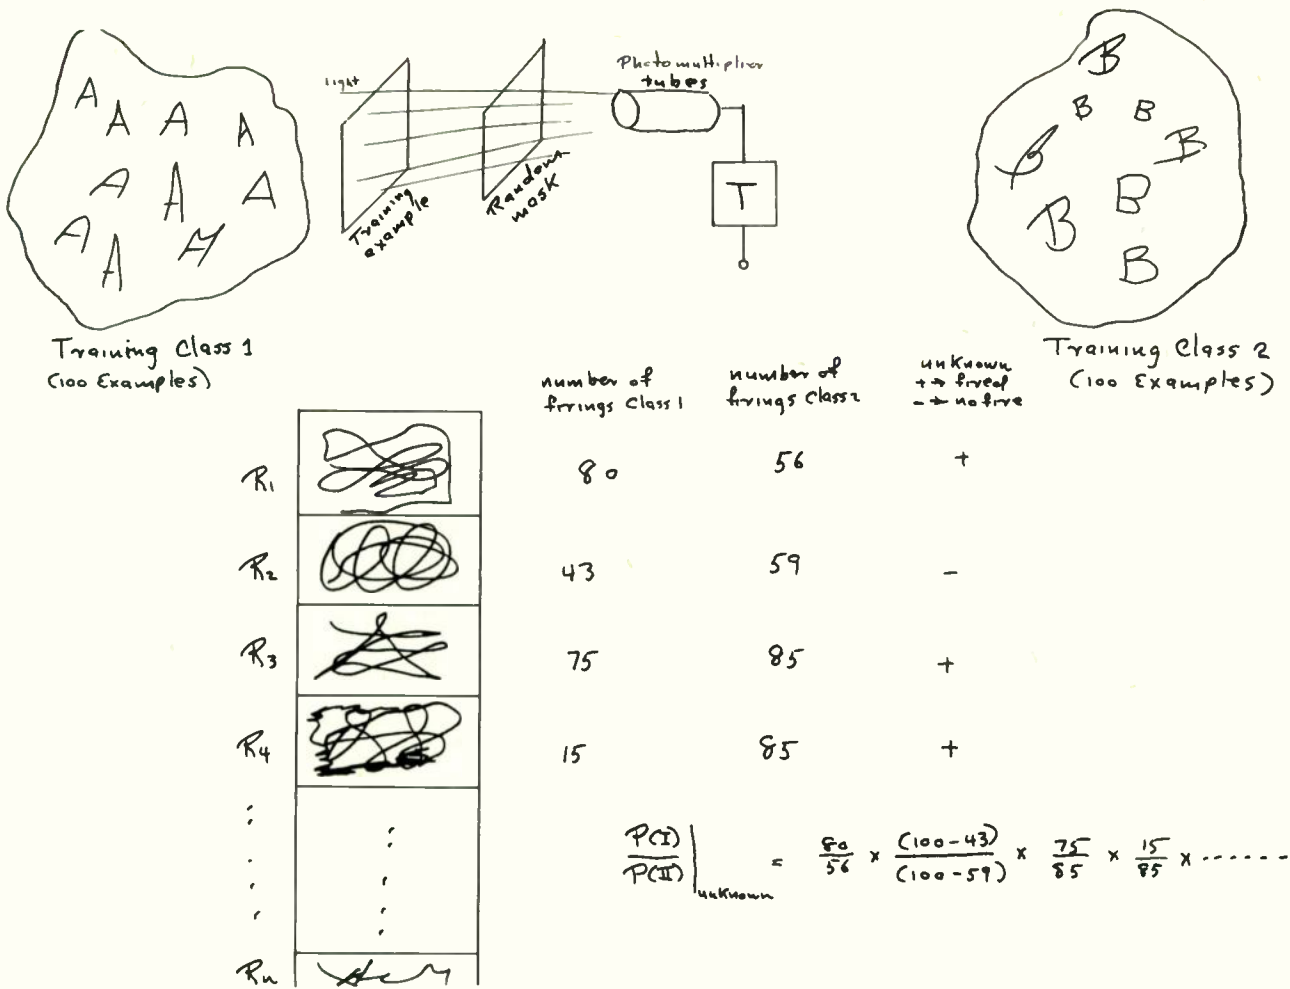 A
A
A
A
A
A
A
A
A
A
Training Class 1
(100 Examples)
light
Training
example
Random
mask
Photomultiplier
tubes
T
B
B
B
B
B
B
B
B
Training Class 2
(100 Examples)
number of
firings Class 1
number of
firings Class 2
unknown
+ → fired
- → no fire
R1 80 56 +
R2 43 59 -
R3 75 85 +
R4 15 85 +
Rn
P(I)/P(II) | unknown = 80/56 × (100-43)/(100-59) × 75/85 × 15/85 × ------